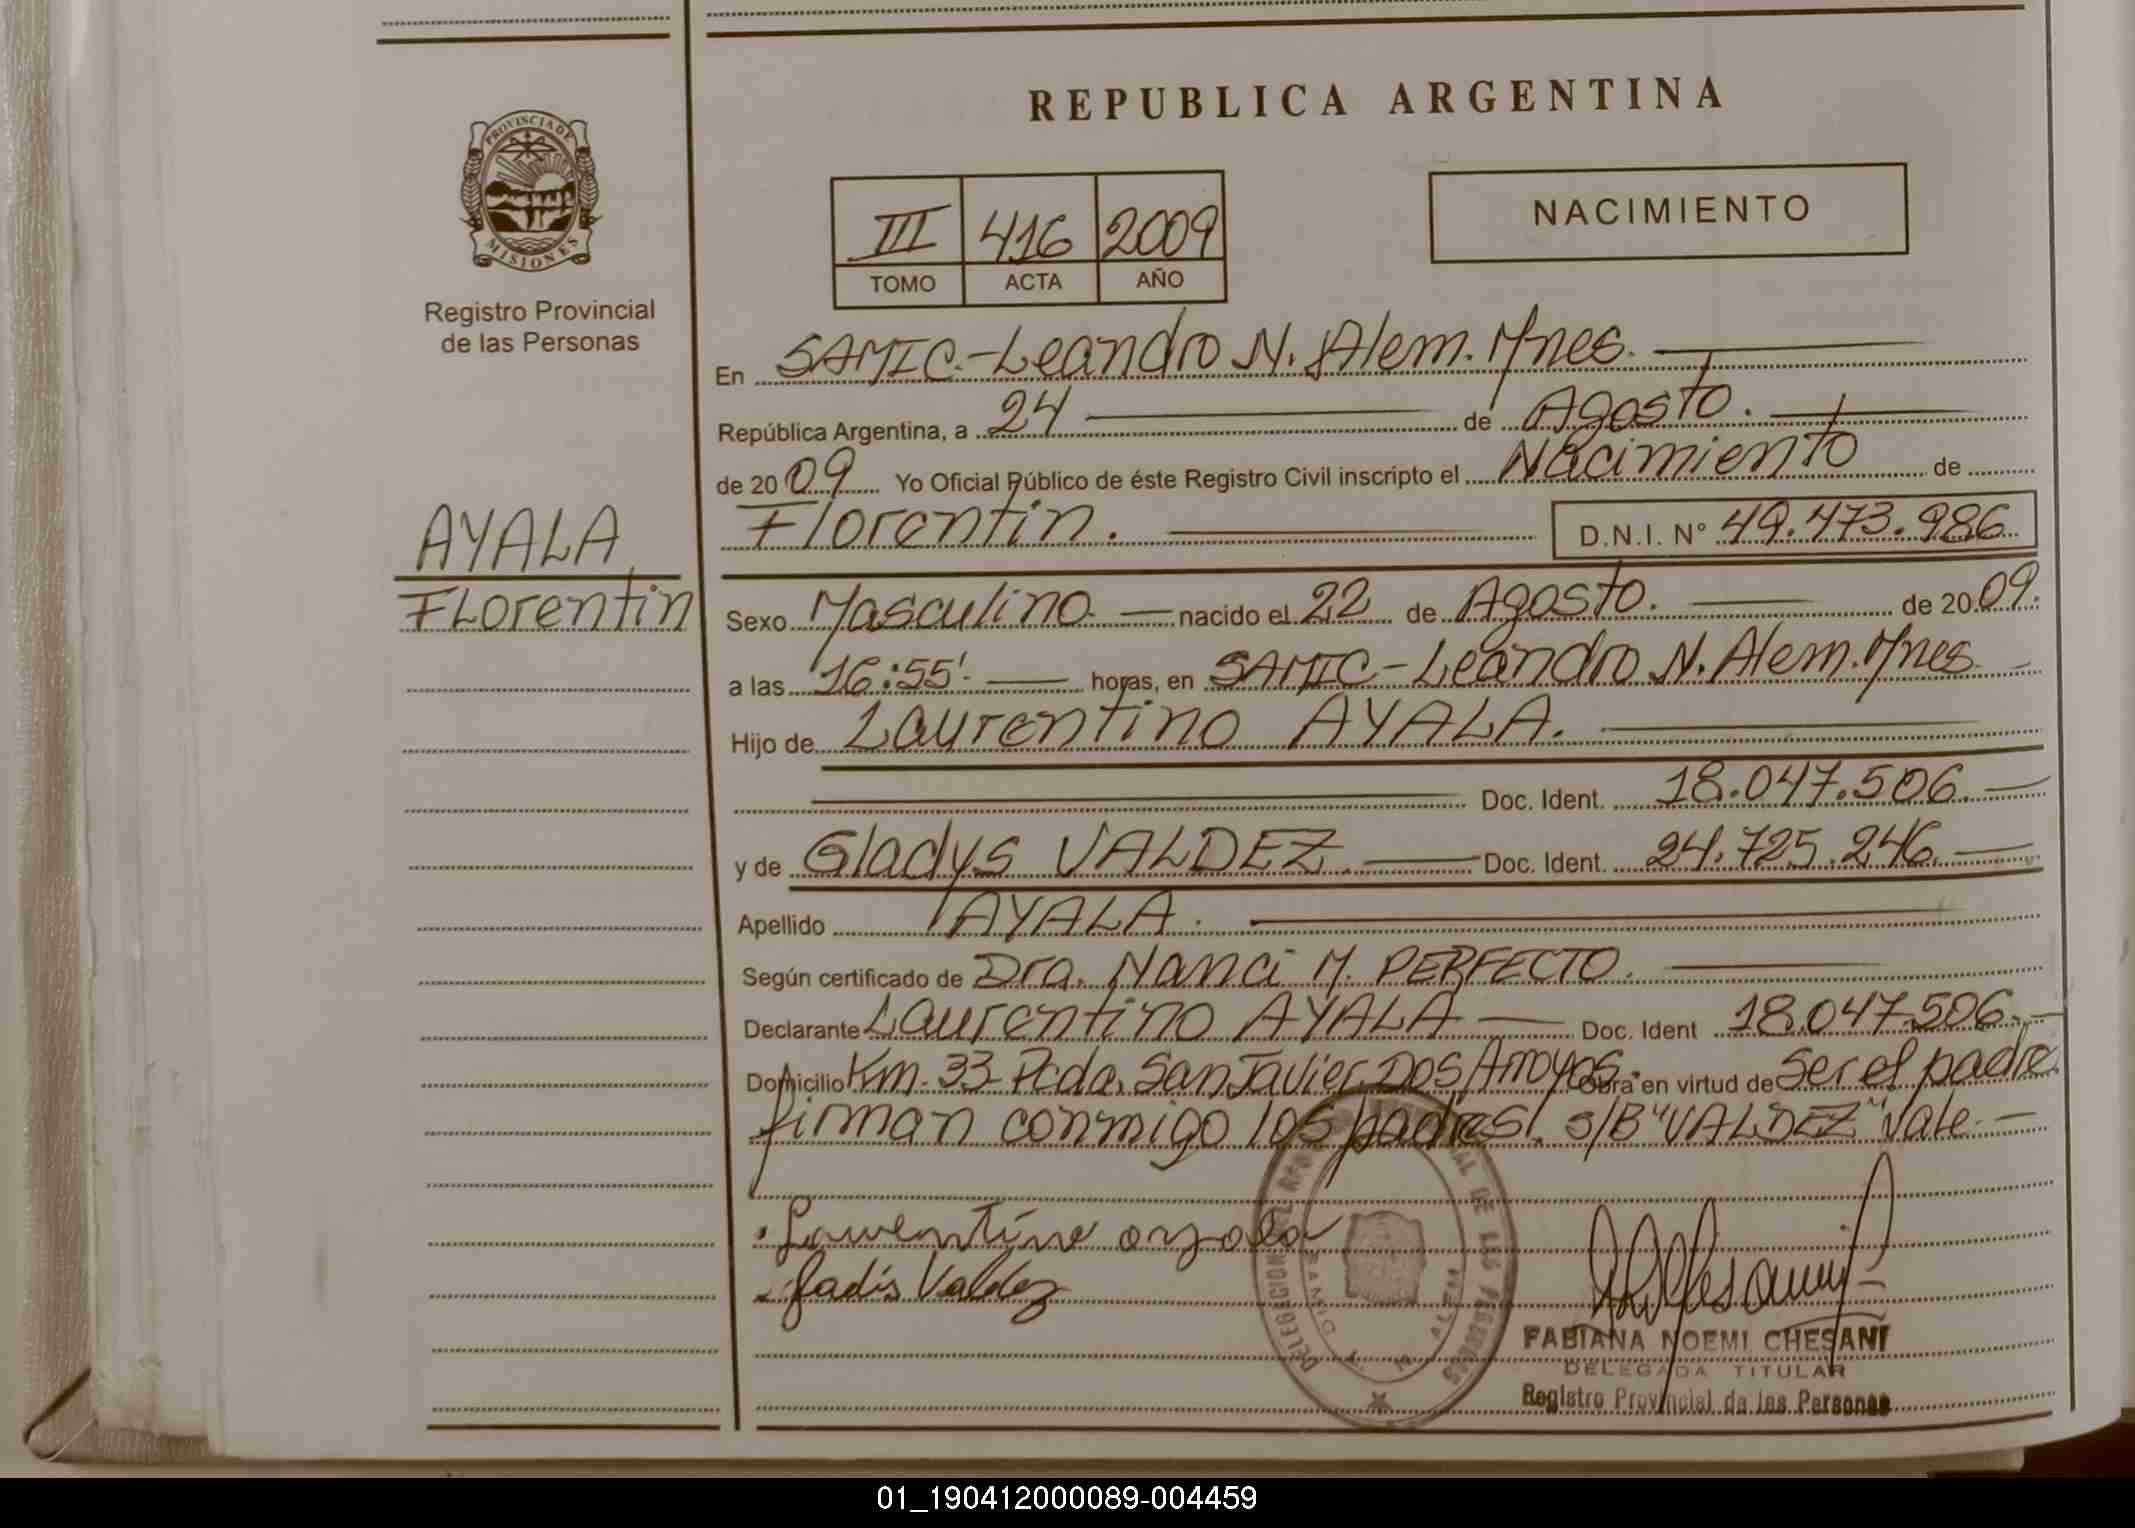 REPUBLICA ARGENTINA
PROVINCIA DE
MISIONES
Registro Provincial
de las Personas
III 416 2009
TOMO ACTA AÑO
NACIMIENTO
En SAMIC.-Leandro N. Alem. Mnes.
República Argentina, a 24 de Agosto.
de 2009 Yo Oficial Público de éste Registro Civil inscripto el Nacimiento de
Florentin. D.N.I. N° 49.473.986
AYALA
Florentin
Sexo Masculino nacido el 22 de Agosto. de 2009.
a las 16:55'. horas, en SAMIC-Leandro N. Alem. Mnes.
Hijo de Laurentino AYALA.
Doc. Ident. 18.047.506.
y de Gladys VALDEZ. Doc. Ident. 24.725.246.
Apellido AYALA.
Según certificado de Dra. Nanci M. PERFECTO.
Declarante Laurentino AYALA Doc. Ident 18.047.506.
Domicilio Km. 33 Pcda. San Javier, Dos Arroyos. Obra en virtud de Ser el padre
firman conmigo los padres/. s/B "VALDEZ" Vale.
Laurentino ayala
Valdez
FABIANA NOEMI CHESANI
DELEGADA TITULAR
Registro Provincial de las Personas
01_190412000089-004459